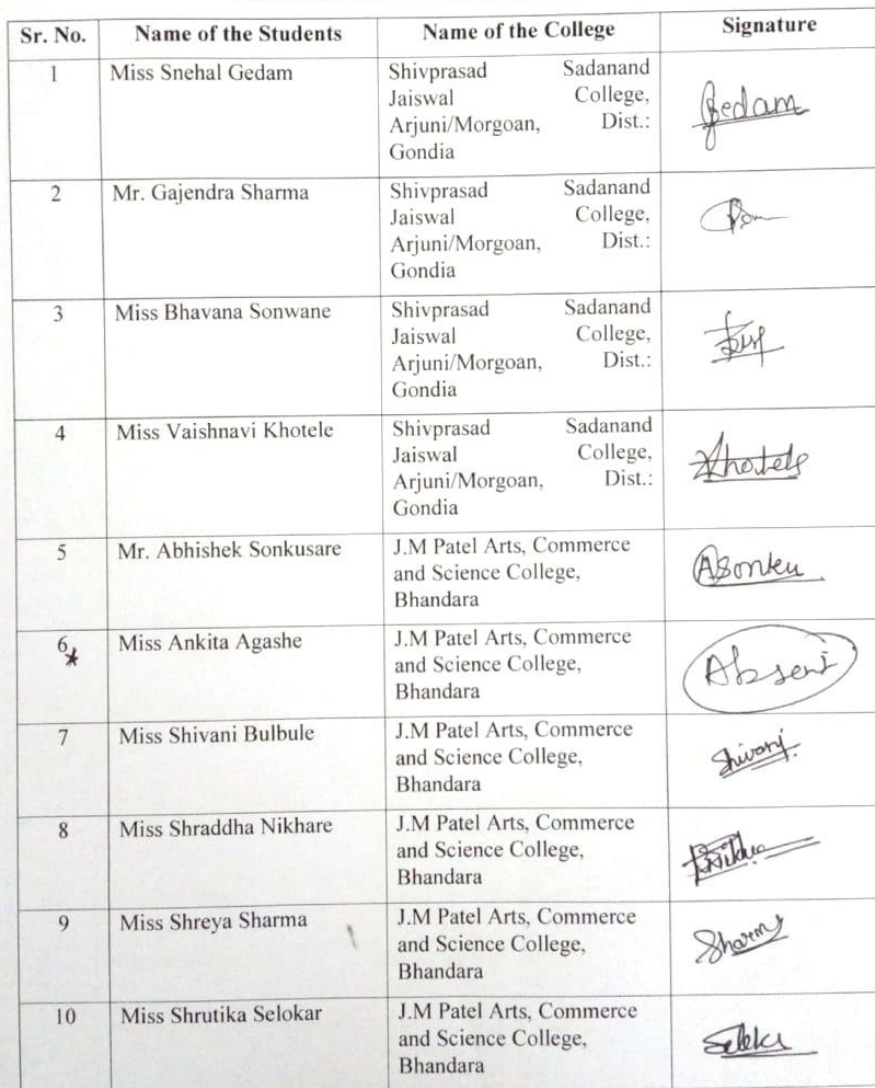 Sr. No. Name of the Students Name of the College Signature
1 Miss Snehal Gedam Shivprasad Sadanand
Jaiswal College,
Arjuni/Morgoan, Dist.:
Gondia
Gedam
2 Mr. Gajendra Sharma Shivprasad Sadanand
Jaiswal College,
Arjuni/Morgoan, Dist.:
Gondia
3 Miss Bhavana Sonwane Shivprasad Sadanand
Jaiswal College,
Arjuni/Morgoan, Dist.:
Gondia
4 Miss Vaishnavi Khotele Shivprasad Sadanand
Jaiswal College,
Arjuni/Morgoan, Dist.:
Gondia
Khotele
5 Mr. Abhishek Sonkusare J.M Patel Arts, Commerce
and Science College,
Bhandara
ASonku
6* Miss Ankita Agashe J.M Patel Arts, Commerce
and Science College,
Bhandara
Absent
7 Miss Shivani Bulbule J.M Patel Arts, Commerce
and Science College,
Bhandara
Shivani
8 Miss Shraddha Nikhare J.M Patel Arts, Commerce
and Science College,
Bhandara
9 Miss Shreya Sharma J.M Patel Arts, Commerce
and Science College,
Bhandara
Sharma
10 Miss Shrutika Selokar J.M Patel Arts, Commerce
and Science College,
Bhandara